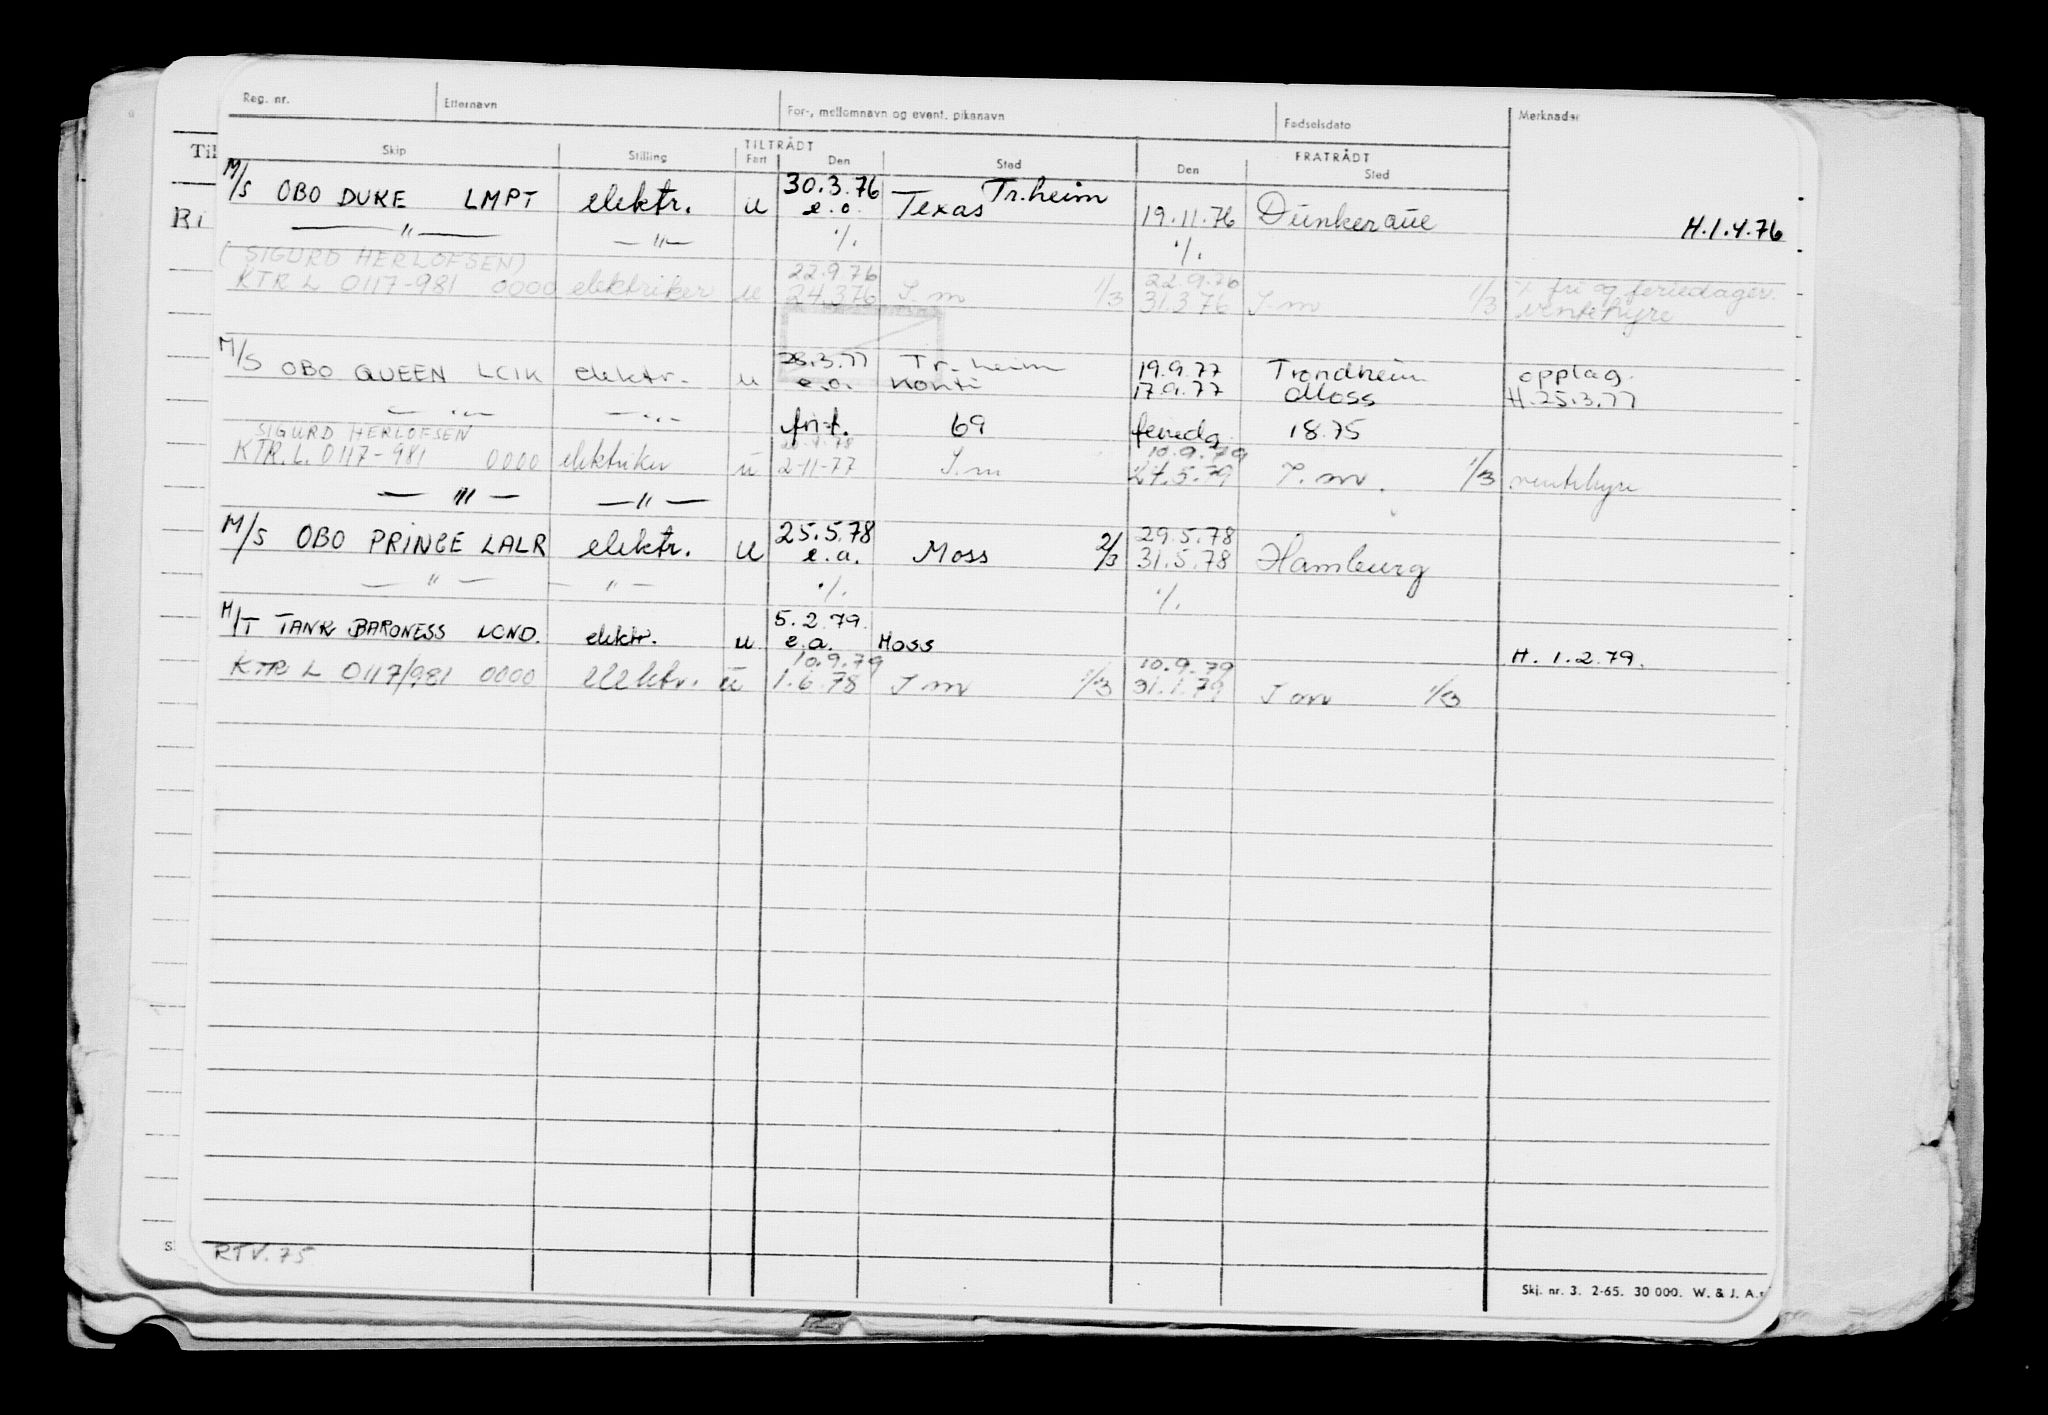 Reg. nr. Etternavn For-, mellomnavn og event. pikenavn Fødselsdato Merknader
TILTRÅDT FRATRÅDT
Skip Stilling Fart Den Sted Den Sted
Til
30.3.76 Tr.heim
M/S OBO DUKE LMPT elektr. u e.o. Texas 19.11.76 Dünkerque H.1.4.76
Ri
— " — — " — ./. ./.
(SIGURD HERLOFSEN) 22.9.76 22.9.76 fri og feriedager.
KTR L 0117-981 0000 elektriker u 24.3.76 S.m 1/3 31.3.76 S.m 1/3 ventehyre
28.3.77 Tr.heim 19.9.77 Trondheim opplag.
M/S OBO QUEEN LCIK elektr. u e.o. Konti 17.9.77 Moss H.25.3.77
— " — — " — frit. 69 feriedg 18.75
SIGURD HERLOFSEN 10.9.79
KTR.L. 0117-981 0000 elektriker u 2-11-77 S.m 24.5.79 S.m. 1/3 ventehyre
— " — — " —
25.5.78 29.5.78
M/S OBO PRINCE LALR elektr. u e.a. Moss 2/3 31.5.78 Hamburg
— " — — " — ./. ./.
5.2.79.
M/T TANK BARONESS LCND. elektr. u e.a. Moss H. 1.2.79.
10.9.79 10.9.79
KTR L 0117/981 0000 elektr. u 1.6.78 S m 1/3 31.1.79 S m 1/3
RTV.75
S
Skj. nr. 3. 2-65. 30 000. W. & J. A.s